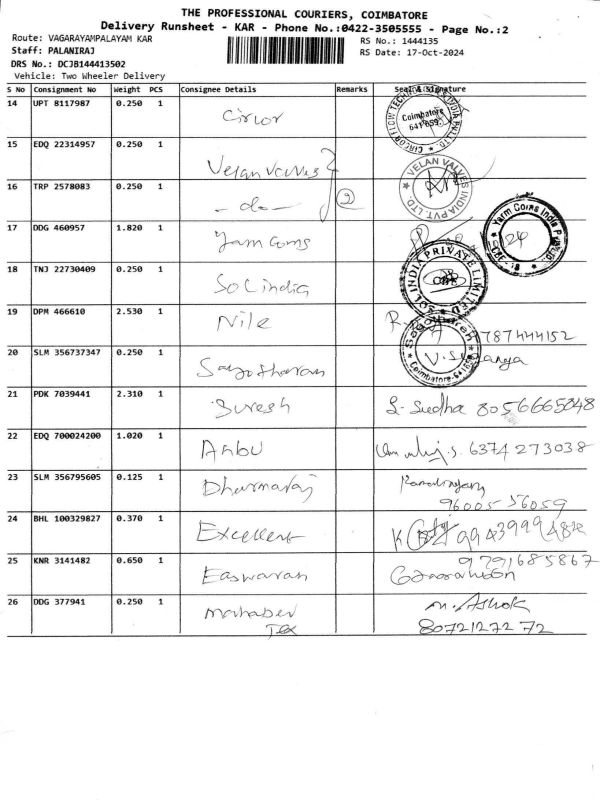 THE PROFESSIONAL COURIERS, COIMBATORE
Delivery Runsheet - KAR - Phone No.:0422-3505555 - Page No.:2
Route: VAGARAYAMPALAYAM KAR
RS No.: 1444135
Staff: PALANIRAJ
RS Date: 17-Oct-2024
DRS No.: DCJB144413502
Vehicle: Two Wheeler Delivery
S No Consignment No Weight PCS Consignee Details Remarks Seal & Signature
14 UPT 8117987 0.250 1
Coimbatore
15 EDQ 22314957 0.250 1 Velan Valves
VELAN VALVES INDIA PVT. LTD
16 TRP 2578083 0.250 1 -do- 2
17 DDG 460957 1.820 1 Yarm Coms
Yarm Coms India
18 TNJ 22730409 0.250 1 Sol india
SOL INDIA PRIVATE LIMITED
19 DPM 466610 2.530 1 Nile
8787444152
20 SLM 356737347 0.250 1
Coimbatore
21 PDK 7039441 2.310 1 Suresh S. Sudha 8056665048
22 EDQ 700024200 1.020 1 Anbu 6374 273038
23 SLM 356795605 0.125 1 Dharmaraj
96005 56059
24 BHL 100329827 0.370 1 Excellent
9791685867
25 KNR 3141482 0.650 1 Easwaran
26 DDG 377941 0.250 1 mahadev m. Ashok
Tex 8072127272